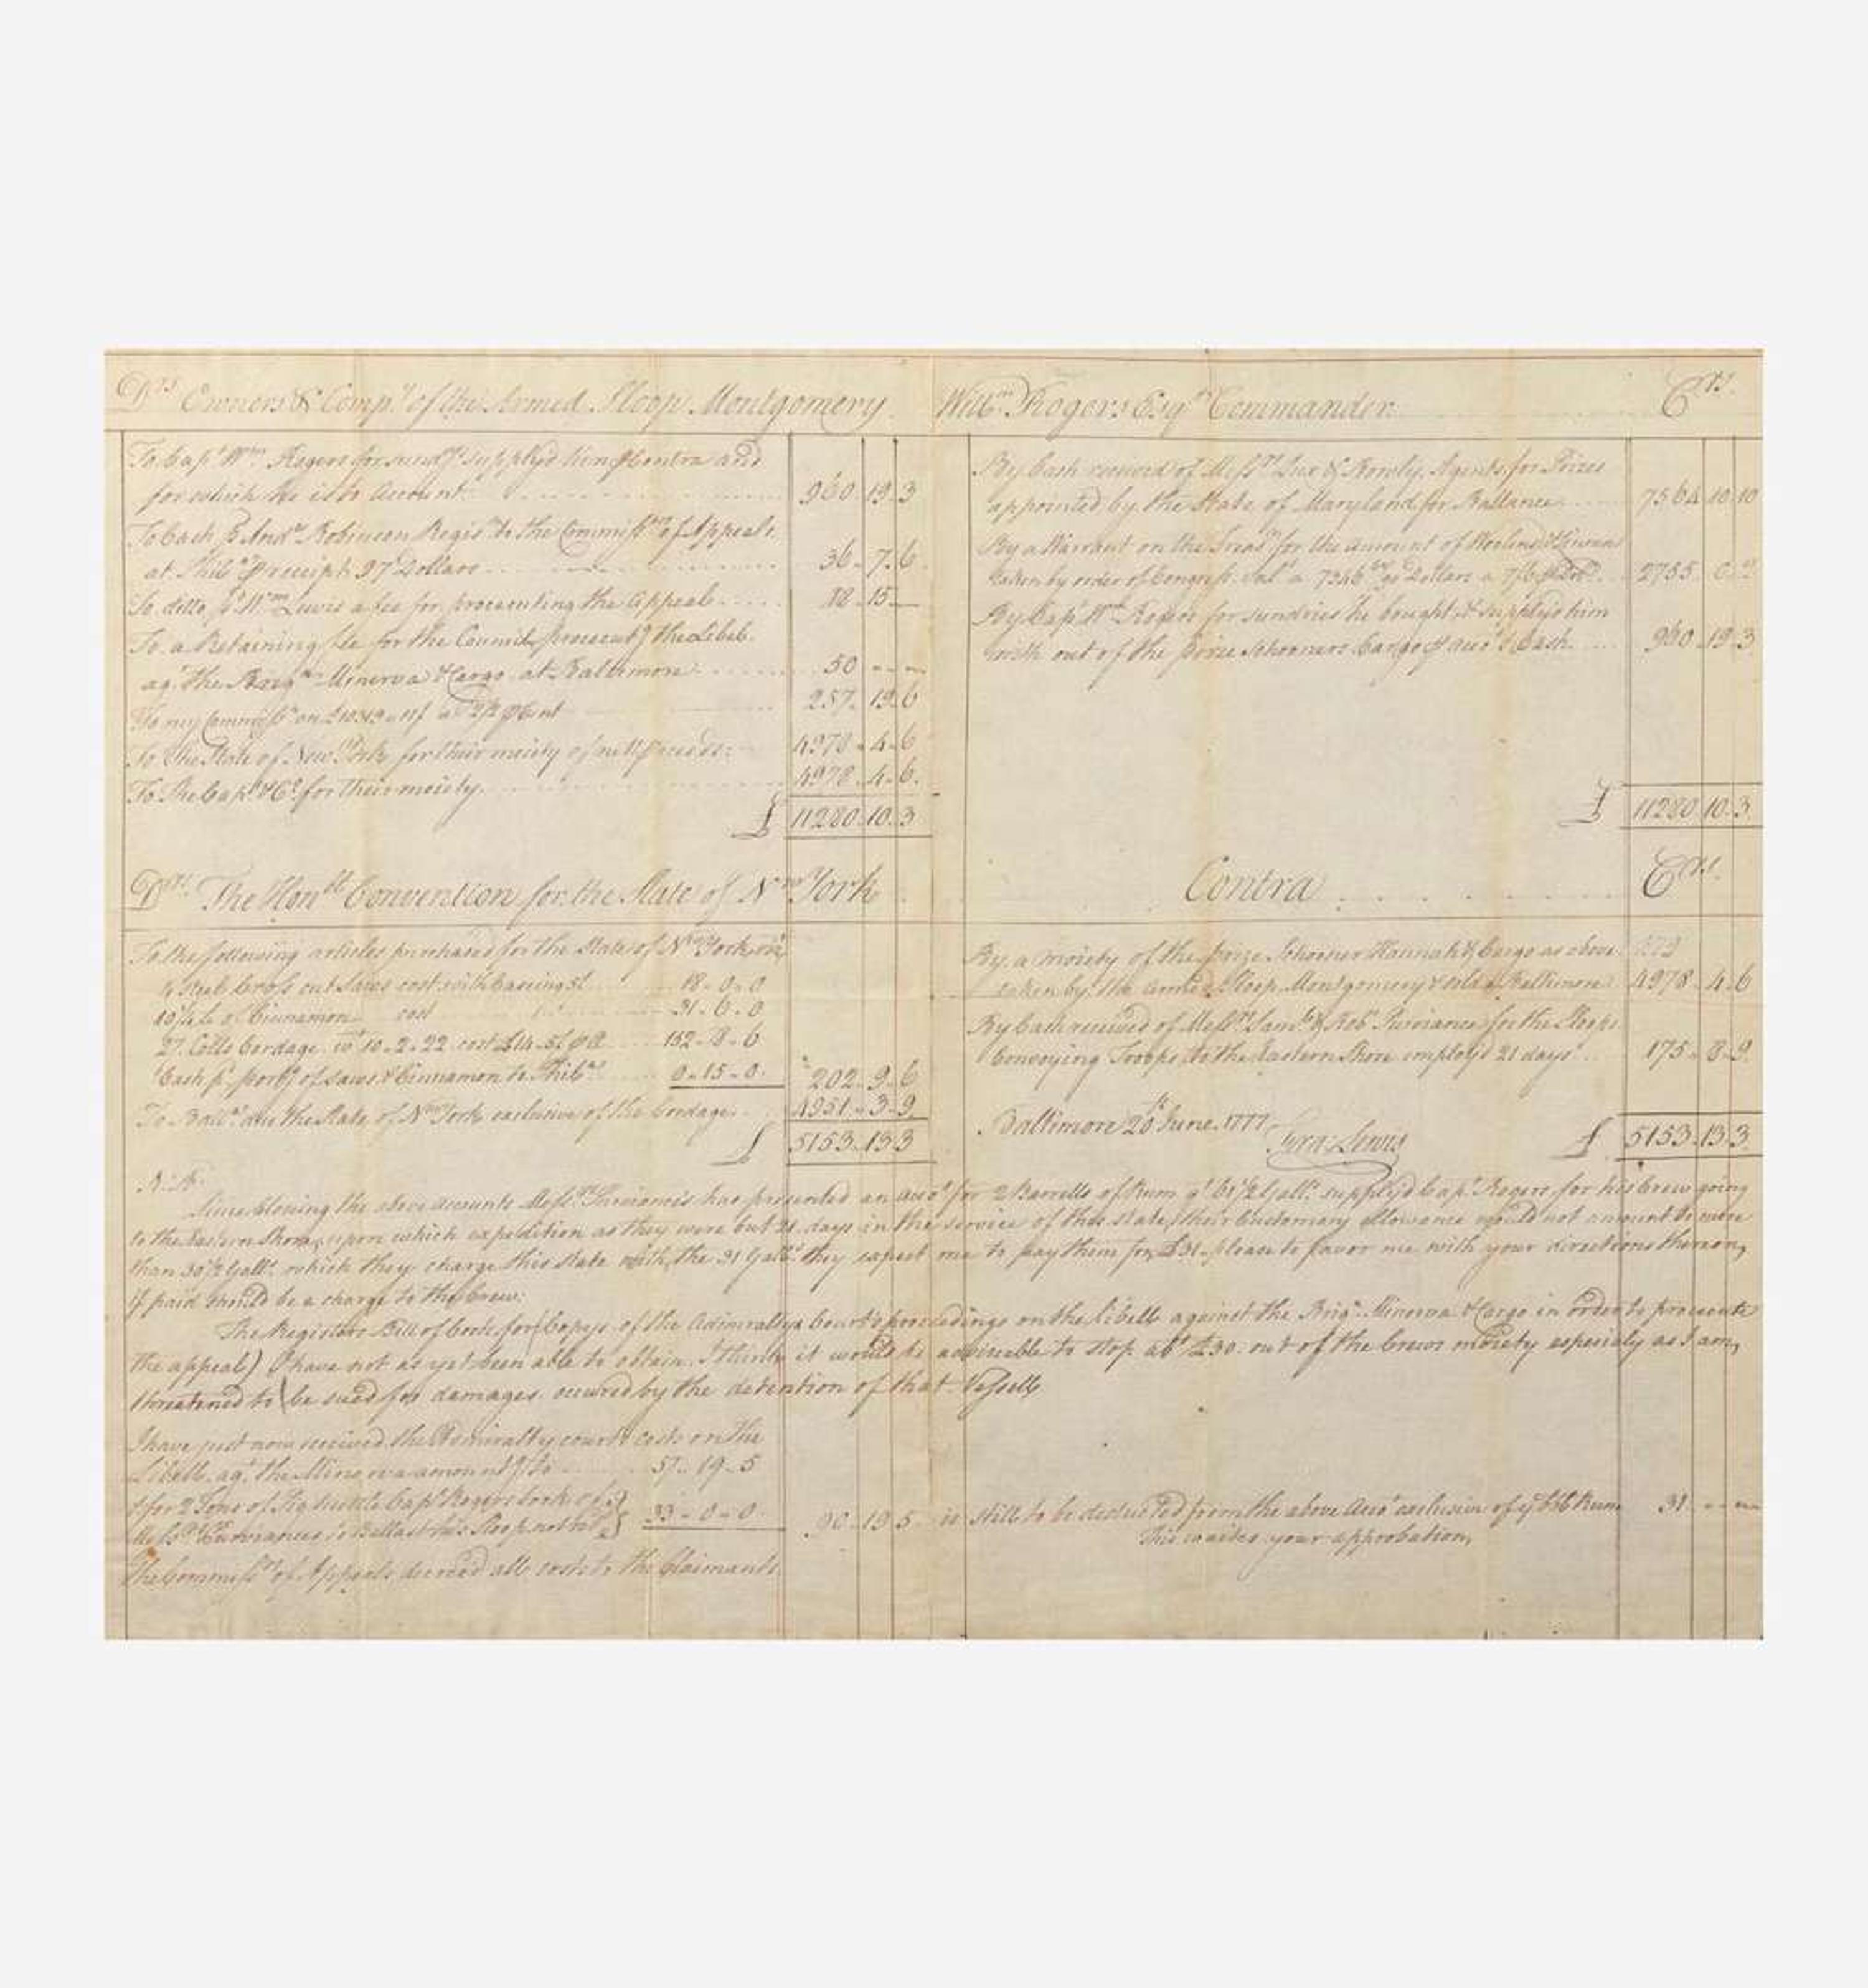 Drs Owners & Compy of the Armed Sloop Montgomery Willm Rogers Esqr Commander Crs.
To Capt Wm Rogers for sundys supplyd him p Contra and
for which he is to Account 960.19.3
To Cash p Andw Robinson Regisr to the Commissrs of Appeals
at Philaa p receipt 97 Dollars 36.7.6
To ditto p Wm Lewis a fee for prosecuting the Appeal 18.15
To a Retaining fee for the Council prosecutg the Libel
agt the Brign Minerva & Cargo at Baltimore 50
To my Commissn on £10319.11/ a 2½ p Cent 257.19.6
To the State of New York for their moiety of nett proceeds 4978.4.6
To the Capt & Co for their moiety 4978.4.6
£ 11280.10.3
By Cash received of Messrs Lux & Bowly, Agents for Prizes
appointed by the State of Maryland for Ballance 7564.10.10
By a Warrant on the Treasr for the amount of
taken by order of Congress Dollars a 7/6 2755.0.2
By Capt Wm Rogers for sundries he bought & supplyd him
with out of the prize Schooners Cargo p Acct & Cash 960.19.3
£ 11280.10.3
Drs The Honble Convention for the State of Nw York Contra Crs.
To the following articles purchased for the State of Nw York viz
Cross cut Saws cost with 18-0-0
of Cinnamon cost 31-6-0
27 Coils Cordage wt 10-2-22 cost 152-8-6
Cash pd portg of saws & Cinnamon to Philaa 0-15-0 202-9-6
To Ballce due the State of Nw York exclusive of the Cordage 4951-3-9
£ 5153.13.3
By a moiety of the prize Schooner Hannah & Cargo as above
taken by the armed Sloop Montgomery & sold a Baltimore 4978.4.6
By Cash received of Messrs Saml & Robt Purviance for the Sloops
Convoying Troops to the Eastern Shore employd 21 days 175-8-9
Baltimore 20th June 1777
Fra: Lewis £ 5153.13.3
N.B.
Since closing the above accounts Messrs Purviances has presented an acct for 2 Barrells of Rum qt 61½ Galls supplyd Capt Rogers for his Crew going
to the Eastern Shore, upon which expedition as they were but 21 days in the service of this state, their Customary allowance would not amount to more
than 30½ Galls which they charge this state with, the 31 Galls they expect me to pay them for, £31 - please to favor me with your directions thereon,
if paid should be a charge to the Crew.
The Registers Bill of Costs for Copeys of the Admiralty Courts proceedings on the libell against the Brign Minerva & Cargo in order to prosecute
the appeal) I have not as yet been able to obtain. I think it would be adviseable to stop abt £30 out of the Crews moiety especialy as I am
threatened to be sued for damages occured by the detention of that Vessell
I have just now received the Admiralty courts costs on the
Libell agt the Minerva amountg to 57-19-5
& for 2 Tons of Pig Capt Rogers took of
Messrs Purviances to Ballast his Sloop 33-0-0 90.19.5 is still to be deducted from the above Acct exclusion of ye Rum 31
This waites your approbation,
The Commissrs of Appeals decreed all costs to the Claimants